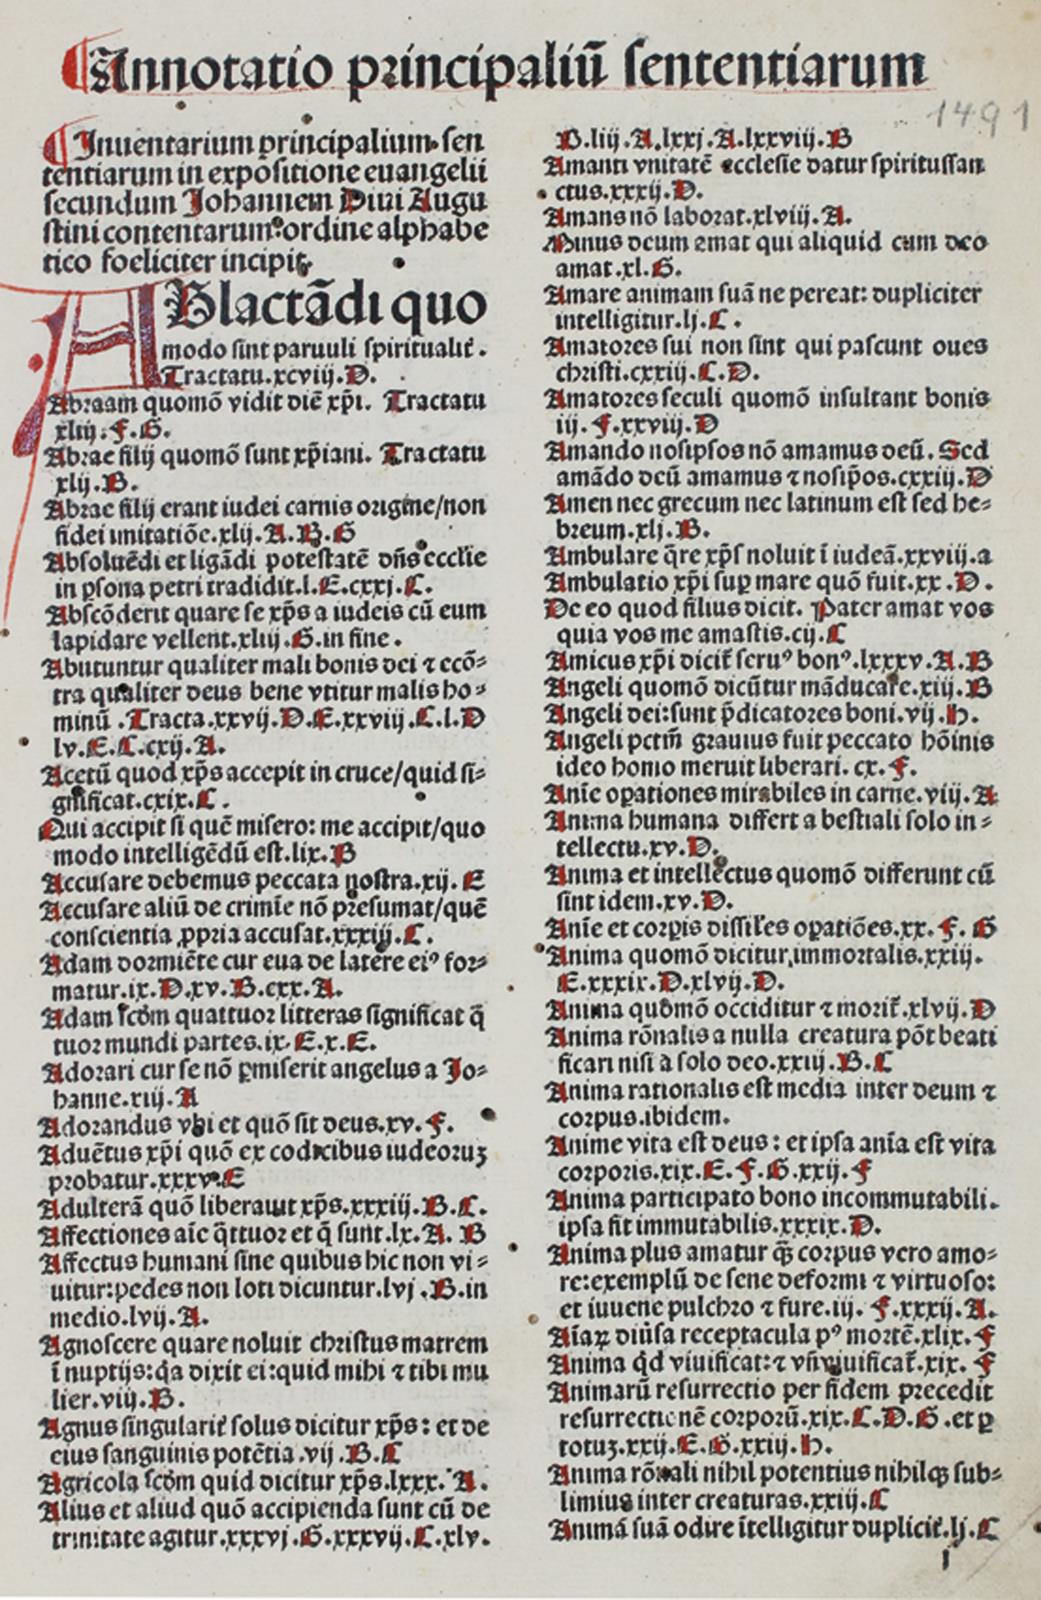 Annotatio principaliū sententiarum
1491
Inuentarium principalium sen
tentiarum in expositione euangelii
secundum Johannem Diui Augu
stini contentarum ordine alphabe
tico foeliciter incipit
ABlactādi quo
modo sint paruuli spiritualit̄.
Tractatu.xcviij.D.
Abraam quomō vidit diē xp̄i. Tractatu
xliij.F.G.
Abrae filij quomō sunt xp̄iani. Tractatu
xlij.B.
Abrae filij erant iudei carnis origine/non
fidei imitatiōe.xlij.A.B.G
Absoluēdi et ligādi potestatē dn̄s ecclīe
in ꝑsona petri tradidit.l.E.cxxj.C.
Abscōderit quare se xp̄s a iudeis cū eum
lapidare vellent.xliij.G.in fine.
Abutuntur qualiter mali bonis dei ⁊ ecō-
tra qualiter deus bene vtitur malis ho-
minū .Tracta.xxvij.D.E.xxviij.C.l.D
lv.E.C.cxij.A.
Acetū quod xp̄s accepit in cruce/quid si-
gnificat.cxix.C.
Qui accipit si quē misero: me accipit/quo
modo intelligēdū est.lix.B
Accusare debemus peccata nostra.xij.E
Accusare aliū de crimīe nō presumat/quē
conscientia ꝓpria accusat.xxxiij.C.
Adam dormiēte cur eua de latere eiꝰ for-
matur.ix.D.xv.B.cxx.A.
Adam scdm̄ quattuor litteras significat q̄
tuor mundi partes.ix.E.x.E.
Adorari cur se nō ꝑmiserit angelus a Jo-
hanne.xiij.A
Adorandus vbi et quō sit deus.xv.F.
Aduētus xp̄i quō ex codicibus iudeoruꝫ
probatur.xxxv.E
Adulterā quō liberauit xp̄s.xxxiij.B.C.
Affectiones aīe q̄ttuor et q̄ sunt.lx.A.B
Affectus humani sine quibus hic non vi-
uitur:pedes non loti dicuntur.lvj.B.in
medio.lvij.A.
Agnoscere quare noluit christus matrem
ī nuptijs:q̄a dixit ei:quid mihi ⁊ tibi mu
lier.viij.B.
Agnus singularit̄ solus dicitur xp̄s: et de
eius sanguinis potētia.vij.B.C
Agricola scdm̄ quid dicitur xp̄s.lxxx.A.
Alius et aliud quō accipienda sunt cū de
trinitate agitur.xxxvj.G.xxxvij.C.xlv.
B.liij.A.lxxj.A.lxxviij.B
Amanti vnitatē ecclesie datur spiritussan
ctus.xxxij.D.
Amans nō laborat.xlviij.A.
Minus deum amat qui aliquid cum deo
amat.xl.G.
Amare animam suā ne pereat: dupliciter
intelligitur.lj.C.
Amatores sui non sint qui pascunt oues
christi.cxxiij.C.D.
Amatores seculi quomō insultant bonis
iij.F.xxviij.D
Amando nosipsos nō amamus deū. Sed
amādo deū amamus ⁊ nosip̄os.cxxiij.D
Amen nec grecum nec latinum est sed he-
breum.xlj.B.
Ambulare q̄re xp̄s noluit ī iudeā.xxviij.a
Ambulatio xp̄i suꝑ mare quō fuit.xx.D.
De eo quod filius dicit. Pater amat vos
quia vos me amastis.cij.C
Amicus xp̄i dicit̄ seruꝰ bonꝰ.lxxxv.A.B
Angeli quomō dicūtur māducare.xiij.B
Angeli dei:sunt p̄dicatores boni.vij.H.
Angeli pctm̄ grauius fuit peccato hōinis
ideo homo meruit liberari.cx.F.
Anīe oꝑationes mirabiles in carne.viij.A
Anima humana differt a bestiali solo in-
tellectu.xv.D.
Anima et intellectus quomō differunt cū
sint idem.xv.D.
Anīe et corꝑis dissiles oꝑatiōes.xx.F.G
Anima quomō dicitur immortalis.xxiij.
E.xxxix.D.xlvij.D.
Anima quomō occiditur ⁊ morit̄.xlvij.D
Anima rōnalis a nulla creatura pōt beati
ficari nisi à solo deo.xxiij.B.C
Anima rationalis est media inter deum ⁊
corpus.ibidem.
Anime vita est deus: et ipsa anīa est vita
corporis.xix.E.F.G.xxij.F
Anima participato bono incommutabili.
ipsa fit immutabilis.xxxix.D.
Anima plus amatur q̄ꝫ corpus vero amo-
re:exemplū de sene deformi ⁊ virtuoso:
et iuuene pulchro ⁊ fure.iij.F.xxxij.A.
Aīaꝝ diūsa receptacula pꝰ mortē.xlix.F
Anima q̄d viuificat:⁊ vn̄ viuificat̄.xix.F
Animarū resurrectio per fidem precedit
resurrectionē corporū.xix.C.D.G.et ꝑ
totuꝫ.xxij.E.G.xxiij.H.
Anima rōnali nihil potentius nihilqꝫ sub-
limius inter creaturas.xxiij.C
Animā suā odire ītelligitur duplicit̄.lj.C
I